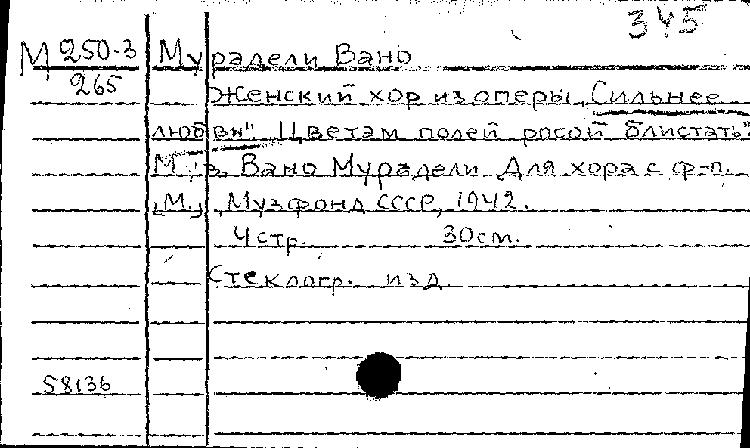 345
М 250-3
265
Мурадели Вано
Женский хор из оперы „Сильнее
любви". „Цветам полей росой блистать"
М.: в. Вано Мурадели. Для хора с ф-п.
[М.], Музфонд СССР, 1942.
4 стр. 30 см.
Стеклогр. изд.
58136